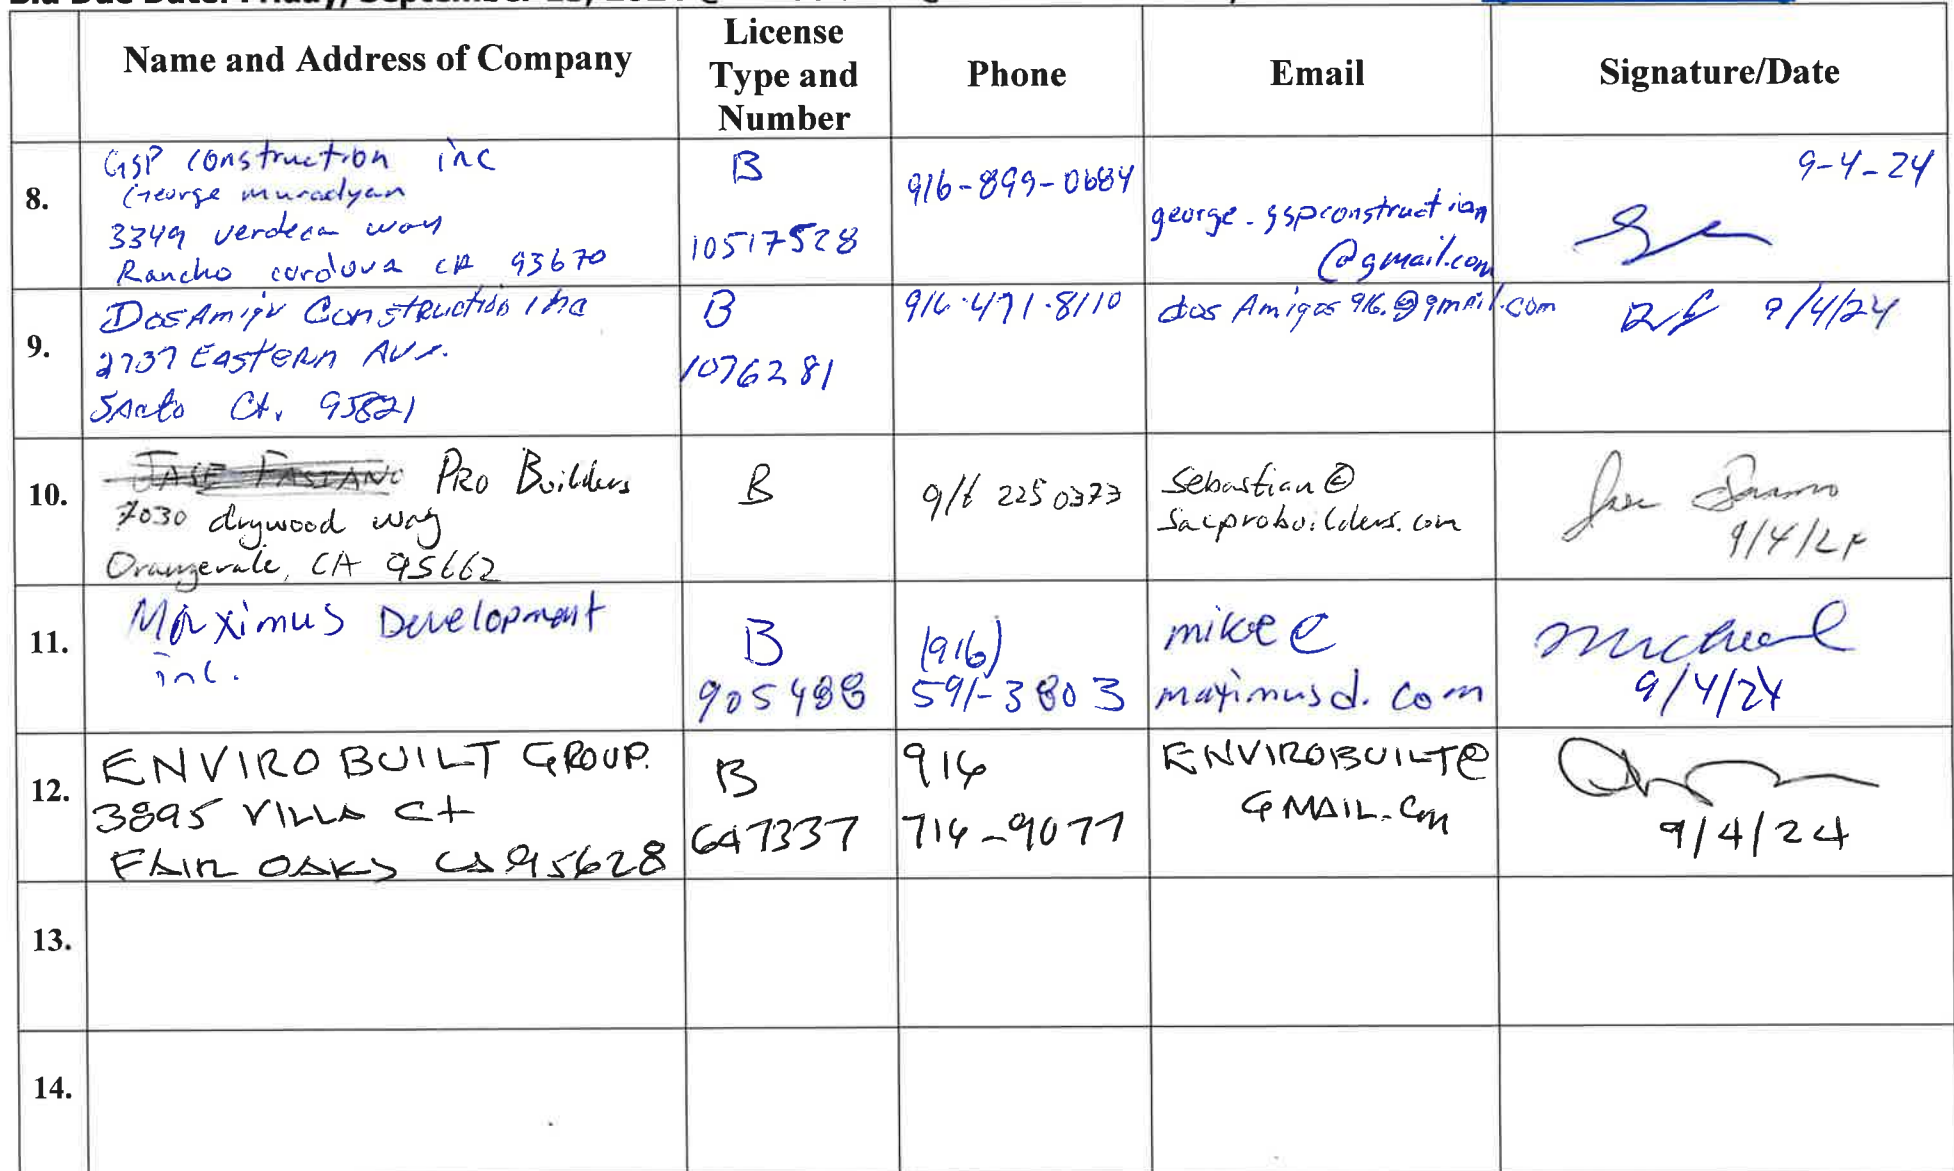 Name and Address of Company
License Type and Number
Phone
Email
Signature/Date
8.
GSP Construction inc
George muradyan
3349 verdeca way
Rancho cordova CA 93670
B
10517528
916-899-0684
george.gspconstruction
@gmail.com
9-4-24
9.
Dos Amigos Construction Inc
2737 Eastern Ave.
Sacto Ca. 95821
B
1076281
916.471.8110
dos Amigos 916.@gmail.com
9/4/24
10.
Pro Builders
7030 drywood way
Orangevale, CA 95662
B
916 225 0373
Sebastian@
Sacprobuilders.com
9/4/24
11.
Maximus Development
inc.
B
905488
(916)
591-3803
mike@
maximusd.com
Micheal
9/4/24
12.
ENVIROBUILT GROUP.
3895 VILLA Ct
FAIR OAKS CA 95628
B
647337
916
714-9077
ENVIROBUILT@
GMAIL.Com
9/4/24
13.
14.